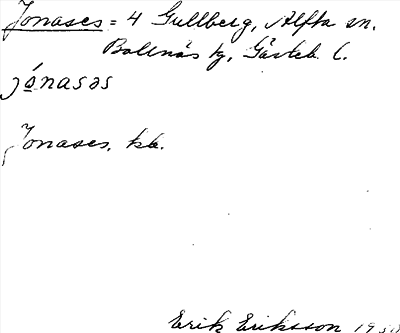 Jonases = 4 Gullberg, Alfta sn.
Bollnäs tg, Gävleb. l.
jónasəs
Jonases, kb.
Erik Eriksson 1930